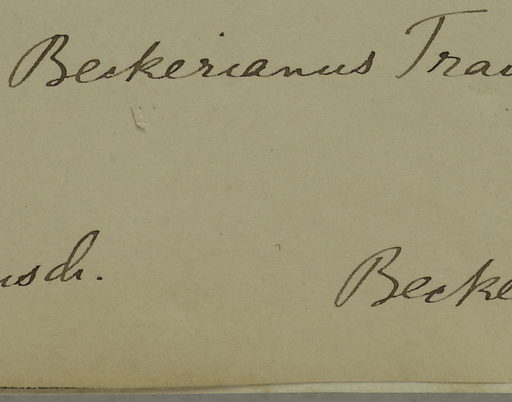 Beckerianus Trau
usch. Becke